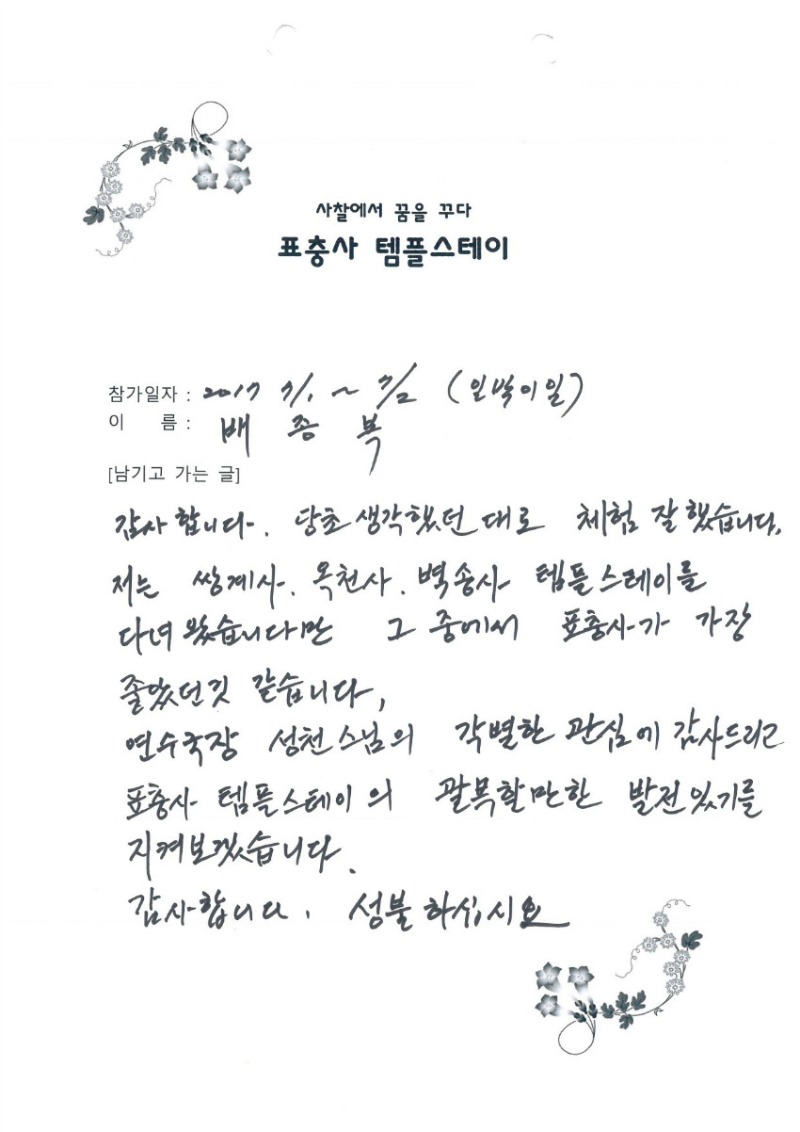 사찰에서 꿈을 꾸다
표충사 템플스테이
참가일자 : 2017 7/1 ~ 7/2 (일박이일)
이 름 : 배 종 복
[남기고 가는 글]
감사합니다. 당초 생각했던 대로 체험 잘 했습니다.
저는 쌍계사. 옥천사. 벽송사 템플스테이를
다녀 왔습니다만 그 중에서 표충사가 가장
좋았던것 같습니다,
연수국장 성천스님의 각별한 관심에 감사드리고
표충사 템플스테이의 괄목할만한 발전있기를
지켜보겠습니다.
감사합니다. 성불하십시요